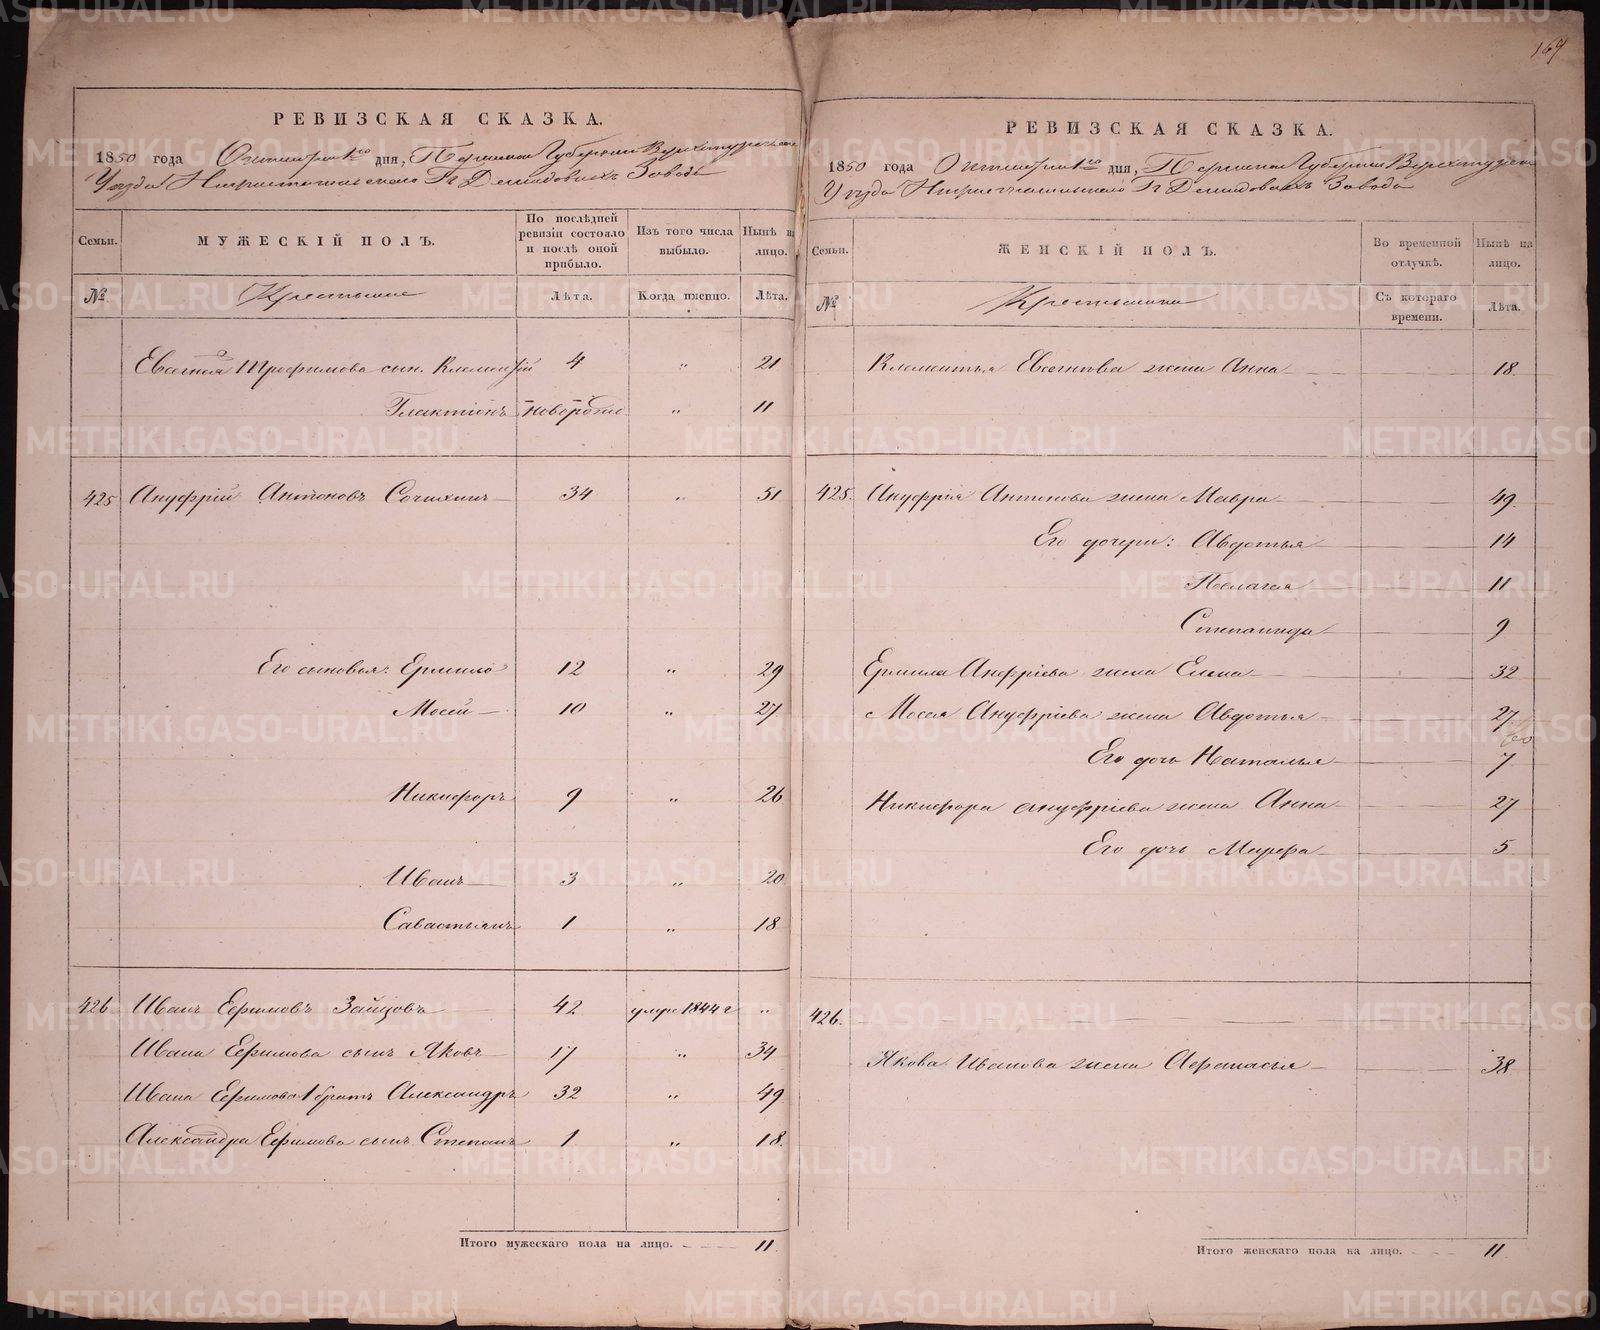 169
РЕВИЗСКАЯ СКАЗКА.
1850 года Октября 1го дня, Пермской Губернии Верхотурскаго
Уезда Нижнетагильскаго Гг Демидовыхъ Завода
Семьи.
МУЖЕСКІЙ ПОЛЪ.
По послѣдней ревизіи состояло и послѣ оной прибыло.
Изъ того числа выбыло.
Нынѣ на лицо.
№
Крестьяне
Лѣта.
Когда именно.
Лѣта.
4 „ 21
Галактіонъ новорожд „ 11
425 Ануфрій Антоновъ 34 „ 51
Его сыновья: Ермило 12 „ 29
Мосей 10 „ 27
Никифоръ 9 „ 26
Иванъ 3 „ 20
Савастьянъ 1 „ 18
426 Иванъ Ефимовъ Зайцовъ 42 умре 1844 г „
Ивана Ефимова сынъ Яковъ 17 „ 34
Ивана Ефимова 1 братъ Александръ 32 „ 49
Александра Ефимова сынъ Степанъ 1 „ 18
Итого мужескаго пола на лицо. 11
РЕВИЗСКАЯ СКАЗКА.
1850 года Октября 1го дня, Пермской Губернии Верхотурскаго
Уезда Нижнетагильскаго Гг Демидовыхъ Завода
Семьи.
ЖЕНСКІЙ ПОЛЪ.
Во временной отлучкѣ.
Нынѣ на лицо.
№
Крестьянки
Съ котораго времени.
Лѣта.
жена Анна 18
425. Ануфрія Антонова жена Мавра 49.
Его дочери: Авдотья 14
Пелагея 11
Степанида 9
Ермила Анфріева жена Елена 32
Мосея Ануфріева жена Авдотья 27
Его дочь Наталья 7
Никифора ануфріева жена Анна 27
Его дочь Марфа 5
426.
Якова Иванова жена Афанасья 38
Итого женскаго пола на лицо. 11
METRIKI.GASO-URAL.RU